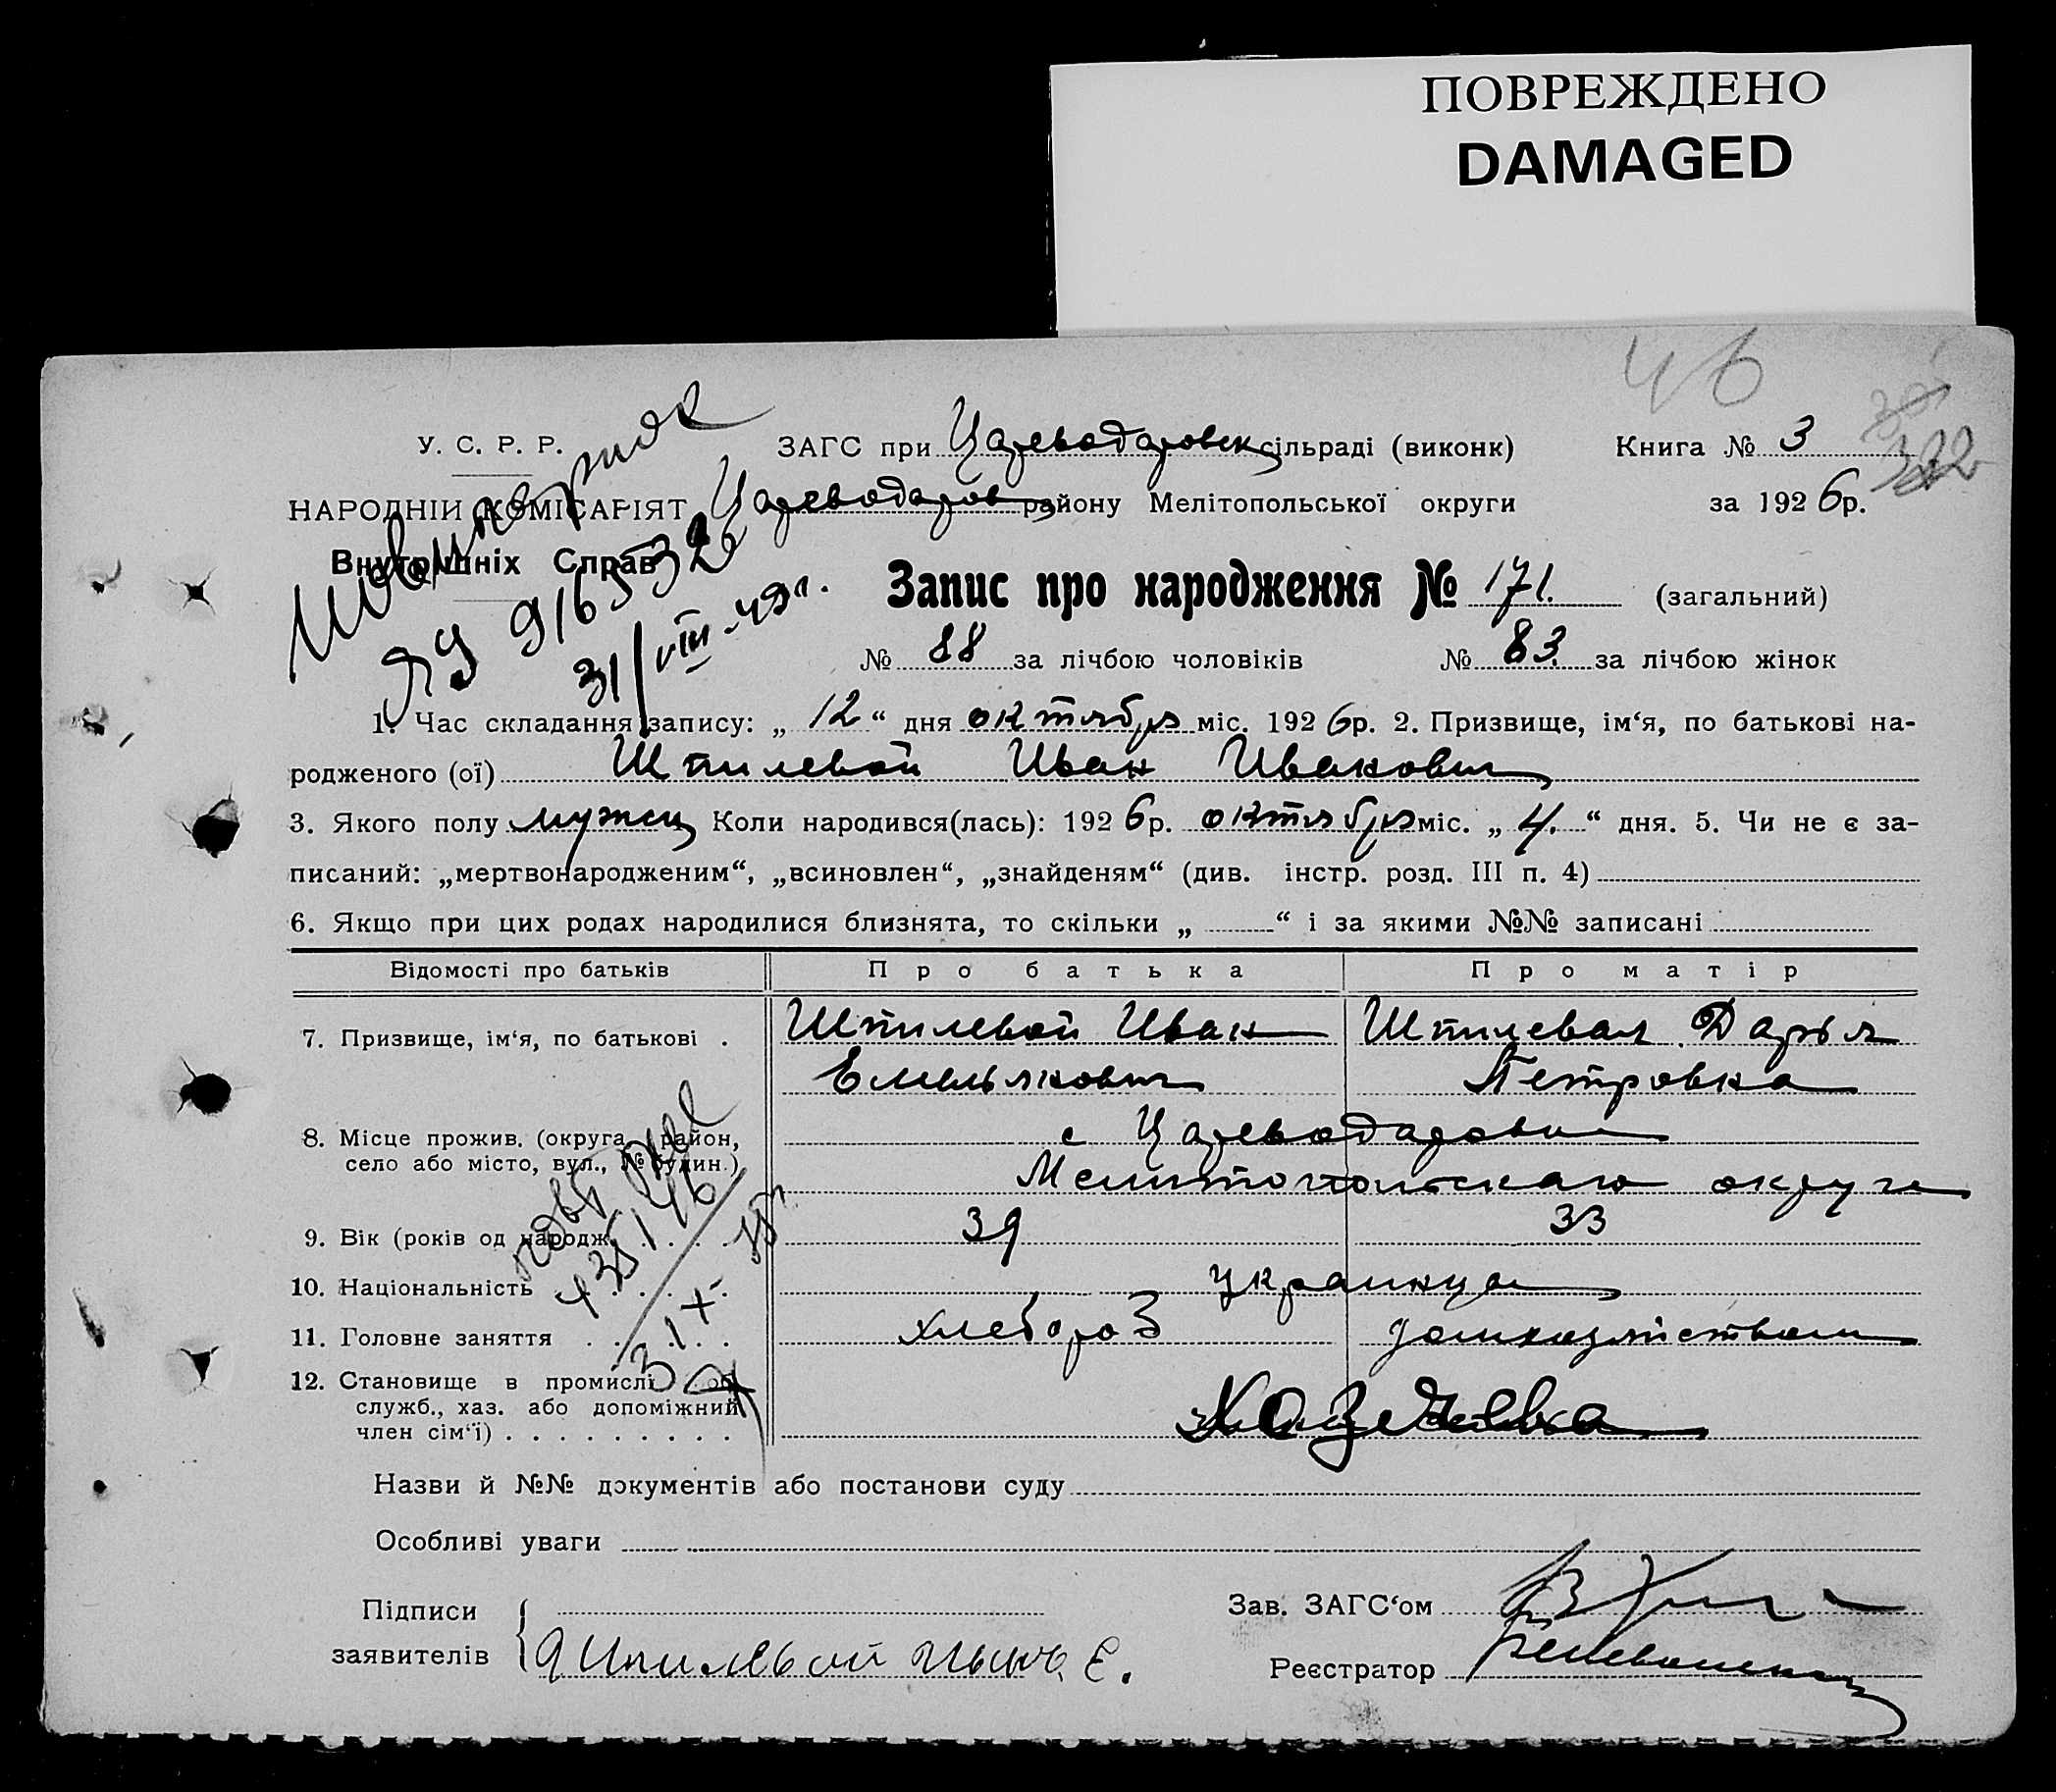 ПОВРЕЖДЕНО
DAMAGED
46
322
У. С. Р. Р.
ЗАГС при Цареводаровск сільраді (виконк) Книга № 3
НАРОДНІЙ КОМІСАРІЯТ Цареводаров району Мелітопольської округи за 1926р.
Внутрішніх Справ
31/VIII-49г.
Запис про народження № 171. (загальний)
№ 88 за лічбою чоловіків № 83. за лічбою жінок
1. Час складання запису: „ 12 “ дня октября міс. 1926р. 2. Призвище, ім‘я, по батькові на-
родженого (ої) Штилевой Иван Иванович
3. Якого полу мужск Коли народився(лась): 1926р. октября міс. „ 4. “ дня. 5. Чи не є за-
писаний: „мертвонародженим“, „всиновлен“, „знайденям“ (див. інстр. розд. III п. 4)
6. Якщо при цих родах народилися близнята, то скільки „ “ і за якими №№ записані
Відомості про батьків Про батька Про матір
7. Призвище, ім‘я, по батькові . Штилевой Иван Штилевая Дарья
Емельянович Петровна
8. Місце прожив. (округа, район, с Цареводаровка
село або місто, вул., № будин.) Мелитопольскаго округи
9. Вік (років од народж. 39 33
10. Національність украинцы
11. Головне заняття хлебороб домхозяйством
12. Становище в промислі об
служб., хаз. або допоміжний
член сім‘ї)
Назви й №№ документів або постанови суду
Особливі уваги
Підписи Зав. ЗАГС‘ом
заявителів Штилевой Иван Е.
Реєстратор